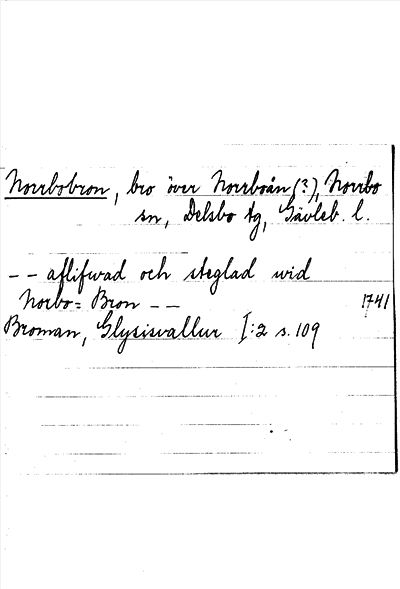 Norrbobron, bro över Norrboån (?), Norrbo
sn, Delsbo tg, Gävleb. l.
-- aflifwad och steglad wid
Norbo= Bron -- 1741
Broman, Glysisvallur I:2 s. 109